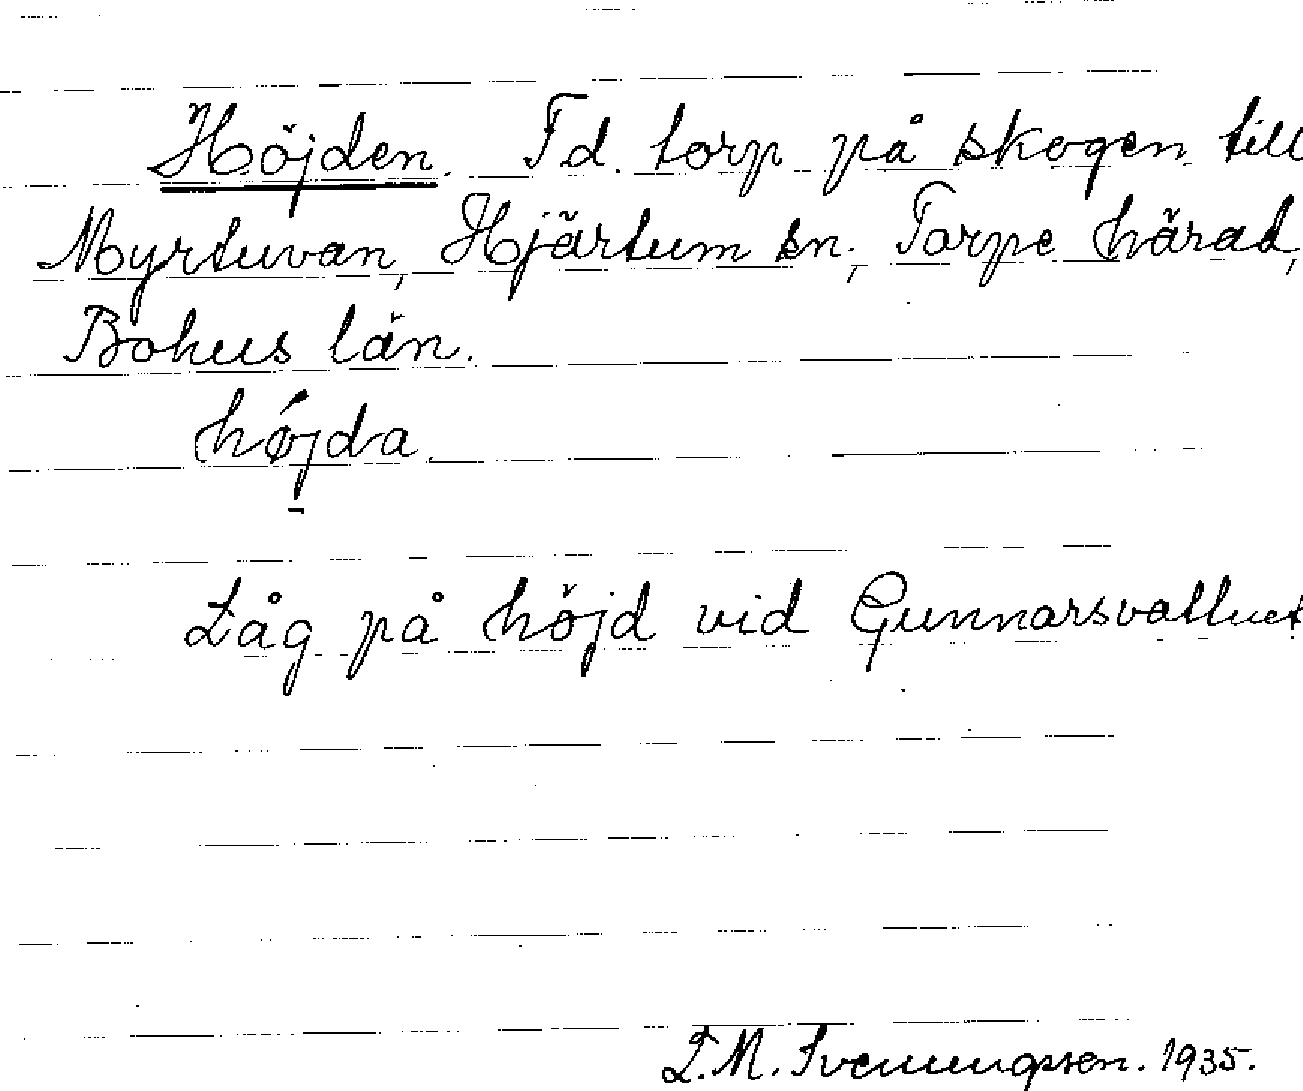 Höjden. F.d. torp på skogen till
Myrtuvan, Hjärtum sn; Torpe härad,
Bohus län.
hǿjda
Låg på höjd vid Gunnarsvattnet
L.M. Svenungsson. 1935.